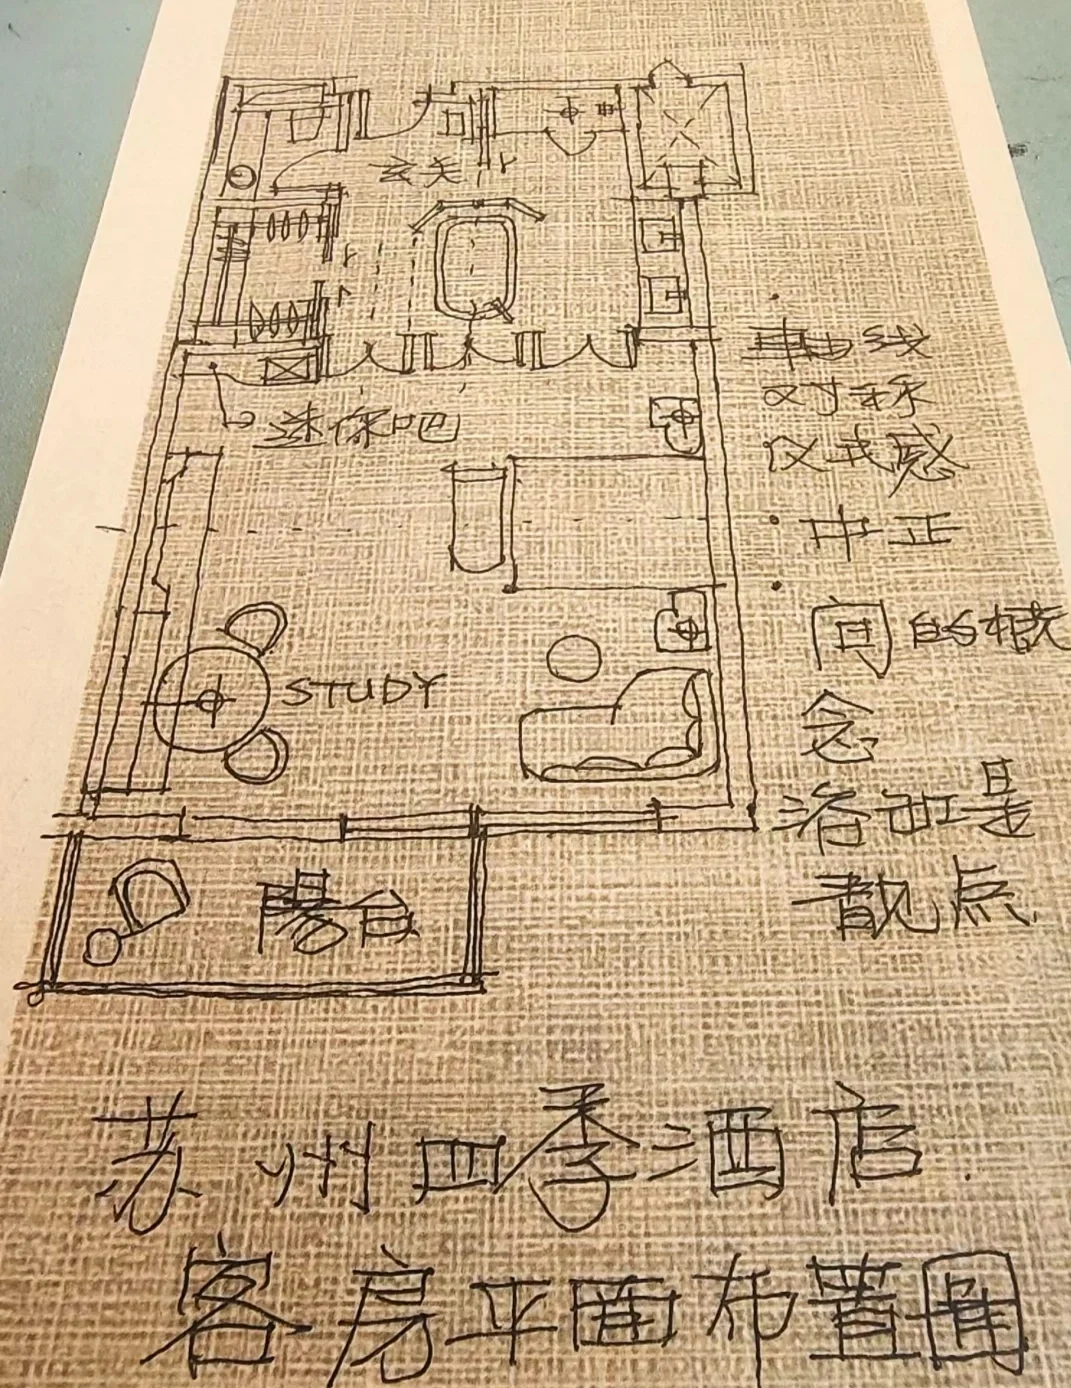 玄关
迷你吧
轴线
对称
仪式感
中正
间的概
念
STUDY
浴缸是
靓点
陽台
苏州四季酒店
客房平面布置圖